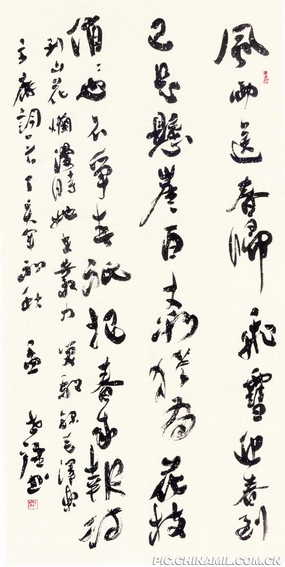 風雨送春歸飛雪迎春到
已是懸崖百丈冰猶有花枝
俏〻也不爭春祇把春來報待
到山花爛漫時她在叢中笑錄毛澤東
主席詞一首丁亥年初秋
PIC.CHINAMIL.COM.CN